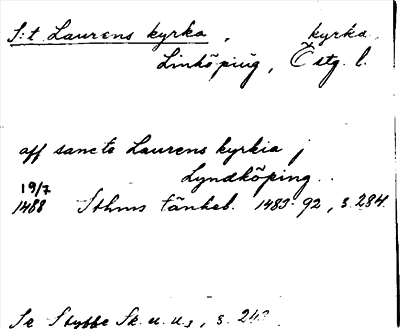 S:t Laurens kyrka, kyrka,
Linköping, Östg. l.
aff sancto Laurens kyrkia j
Lyndköping.
19/7
1488 Sthms tänkeb. 1483-92, s. 284.
Se Stybbe Sk. u. u., s.